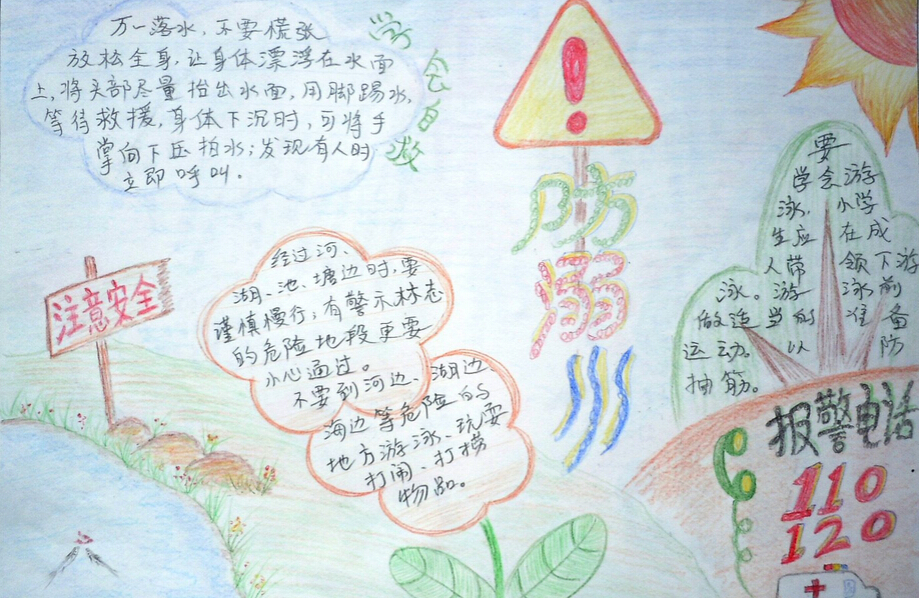 万一落水，不要慌张
放松全身，让身体漂浮在水面
上，将头部尽量抬出水面，用脚踢水，
等待救援，身体下沉时，可将手
掌向下压拍水；发现有人时
立即呼叫。
学会自救
防溺
注意安全
经过河、
湖、池、塘边时，要
谨慎慢行；有警示标志
的危险地段更要
小心通过。
不要到河边、湖边
海边等危险的
地方游泳、玩耍
打闹、打捞
物品。
要
学会游
泳，小学
生应在成
人带领下游
泳。游泳前
做适当的准备
运动。以防
抽筋。
报警电话
110
120